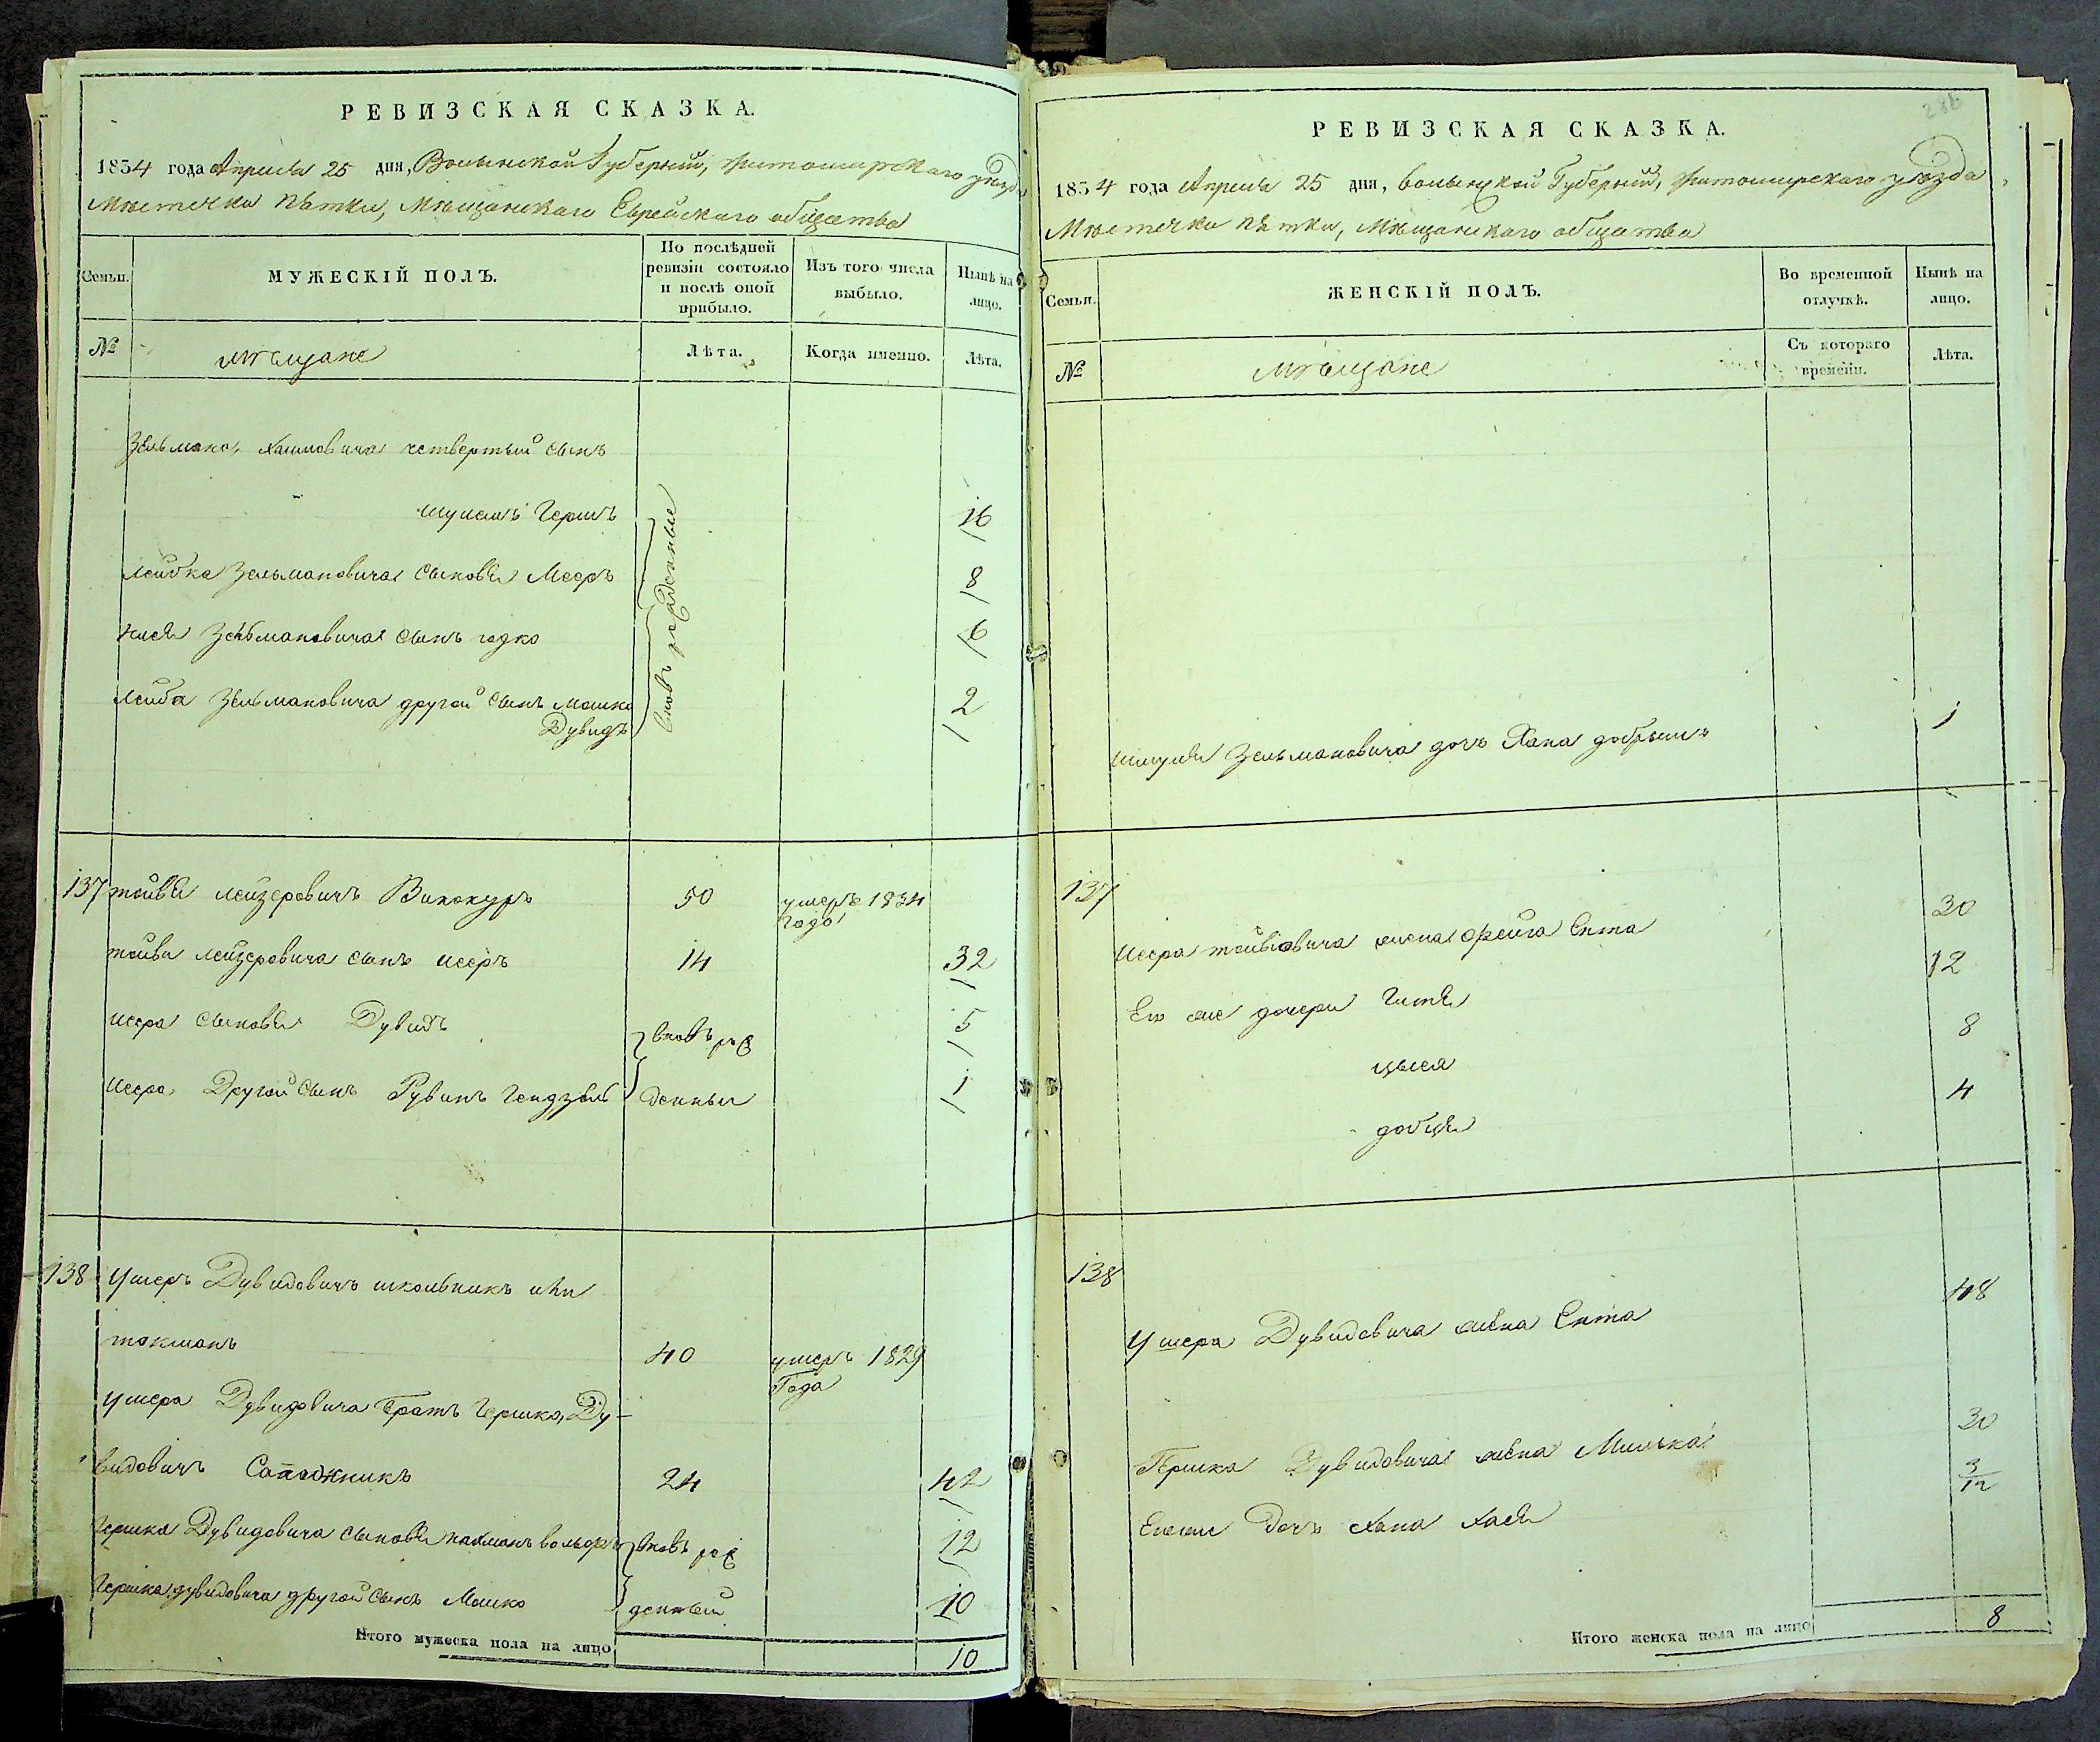 РЕВИЗСКАЯ СКАЗКА.
1834 года Апреля 25 дня, Волынской Губерний, Житомирскаго уезда
Мѣстечка Пѣтки, Мѣщанскаго Еврейскаго общества
Семьи.
МУЖЕСКІЙ ПОЛЪ.
По послѣдней ревизіи состояло и послѣ оной прибыло.
Изъ того числа выбыло.
Нынѣ на лицо.
№
мѣщане
Лѣта.
Когда именно.
Лѣта.
Зельмана Хаимовича четвертый сынъ
Шулемъ Гершъ 16
Лейбка Зельмановича сыновья Мееръ 8
Зельмановича сынъ 6
Лейба Зельмановича другой сынъ Мошко 2
Дувидъ
вновь рожденные
137 Тойвья Лейзеровичъ Винокуръ 50 умеръ 1834
года
Тойвы Лейзеровича сынъ Исеръ 14 32
Исера сыновья Дувидъ вновь рож 5
Исера Другой сынъ Рувинъ Гендзель денные 1
138 Ушеръ Дувидовичъ школьникъ или
токманъ 40 умеръ 1829
Года
Ушера Дувидовича братъ Гершко Ду-
видовичъ Сапожникъ 24 42
Гершка Дувидовича сыновья Нахманъ Вольфъ вновь рож 12
Гершка Дувидовича другой сынъ Мошко денный 10
Итого мужеска пола на лицо 10
286
РЕВИЗСКАЯ СКАЗКА.
1834 года Апреля 25 дня, Волынской Губерний, Житомирскаго уезда
Мѣстечка Пѣтки, Мѣщанскаго общества
Семьи.
ЖЕНСКІЙ ПОЛЪ.
Во временной отлучкѣ.
Нынѣ на лицо.
№
мѣщане
Съ котораго времени.
Лѣта.
Зельмановича дочь Хана Добрышъ 1
137
Исера Тойвіовича жена Фейга Ента 30
Его же дочери Гитля 12
Цыся 8
Добця 4
138
Ушера Дувидовича жена Ента 48
Гершка Дувидовича жена Минька 30
Его же Дочь Хана Хася 3/12
Итого женска пола на лицо 8